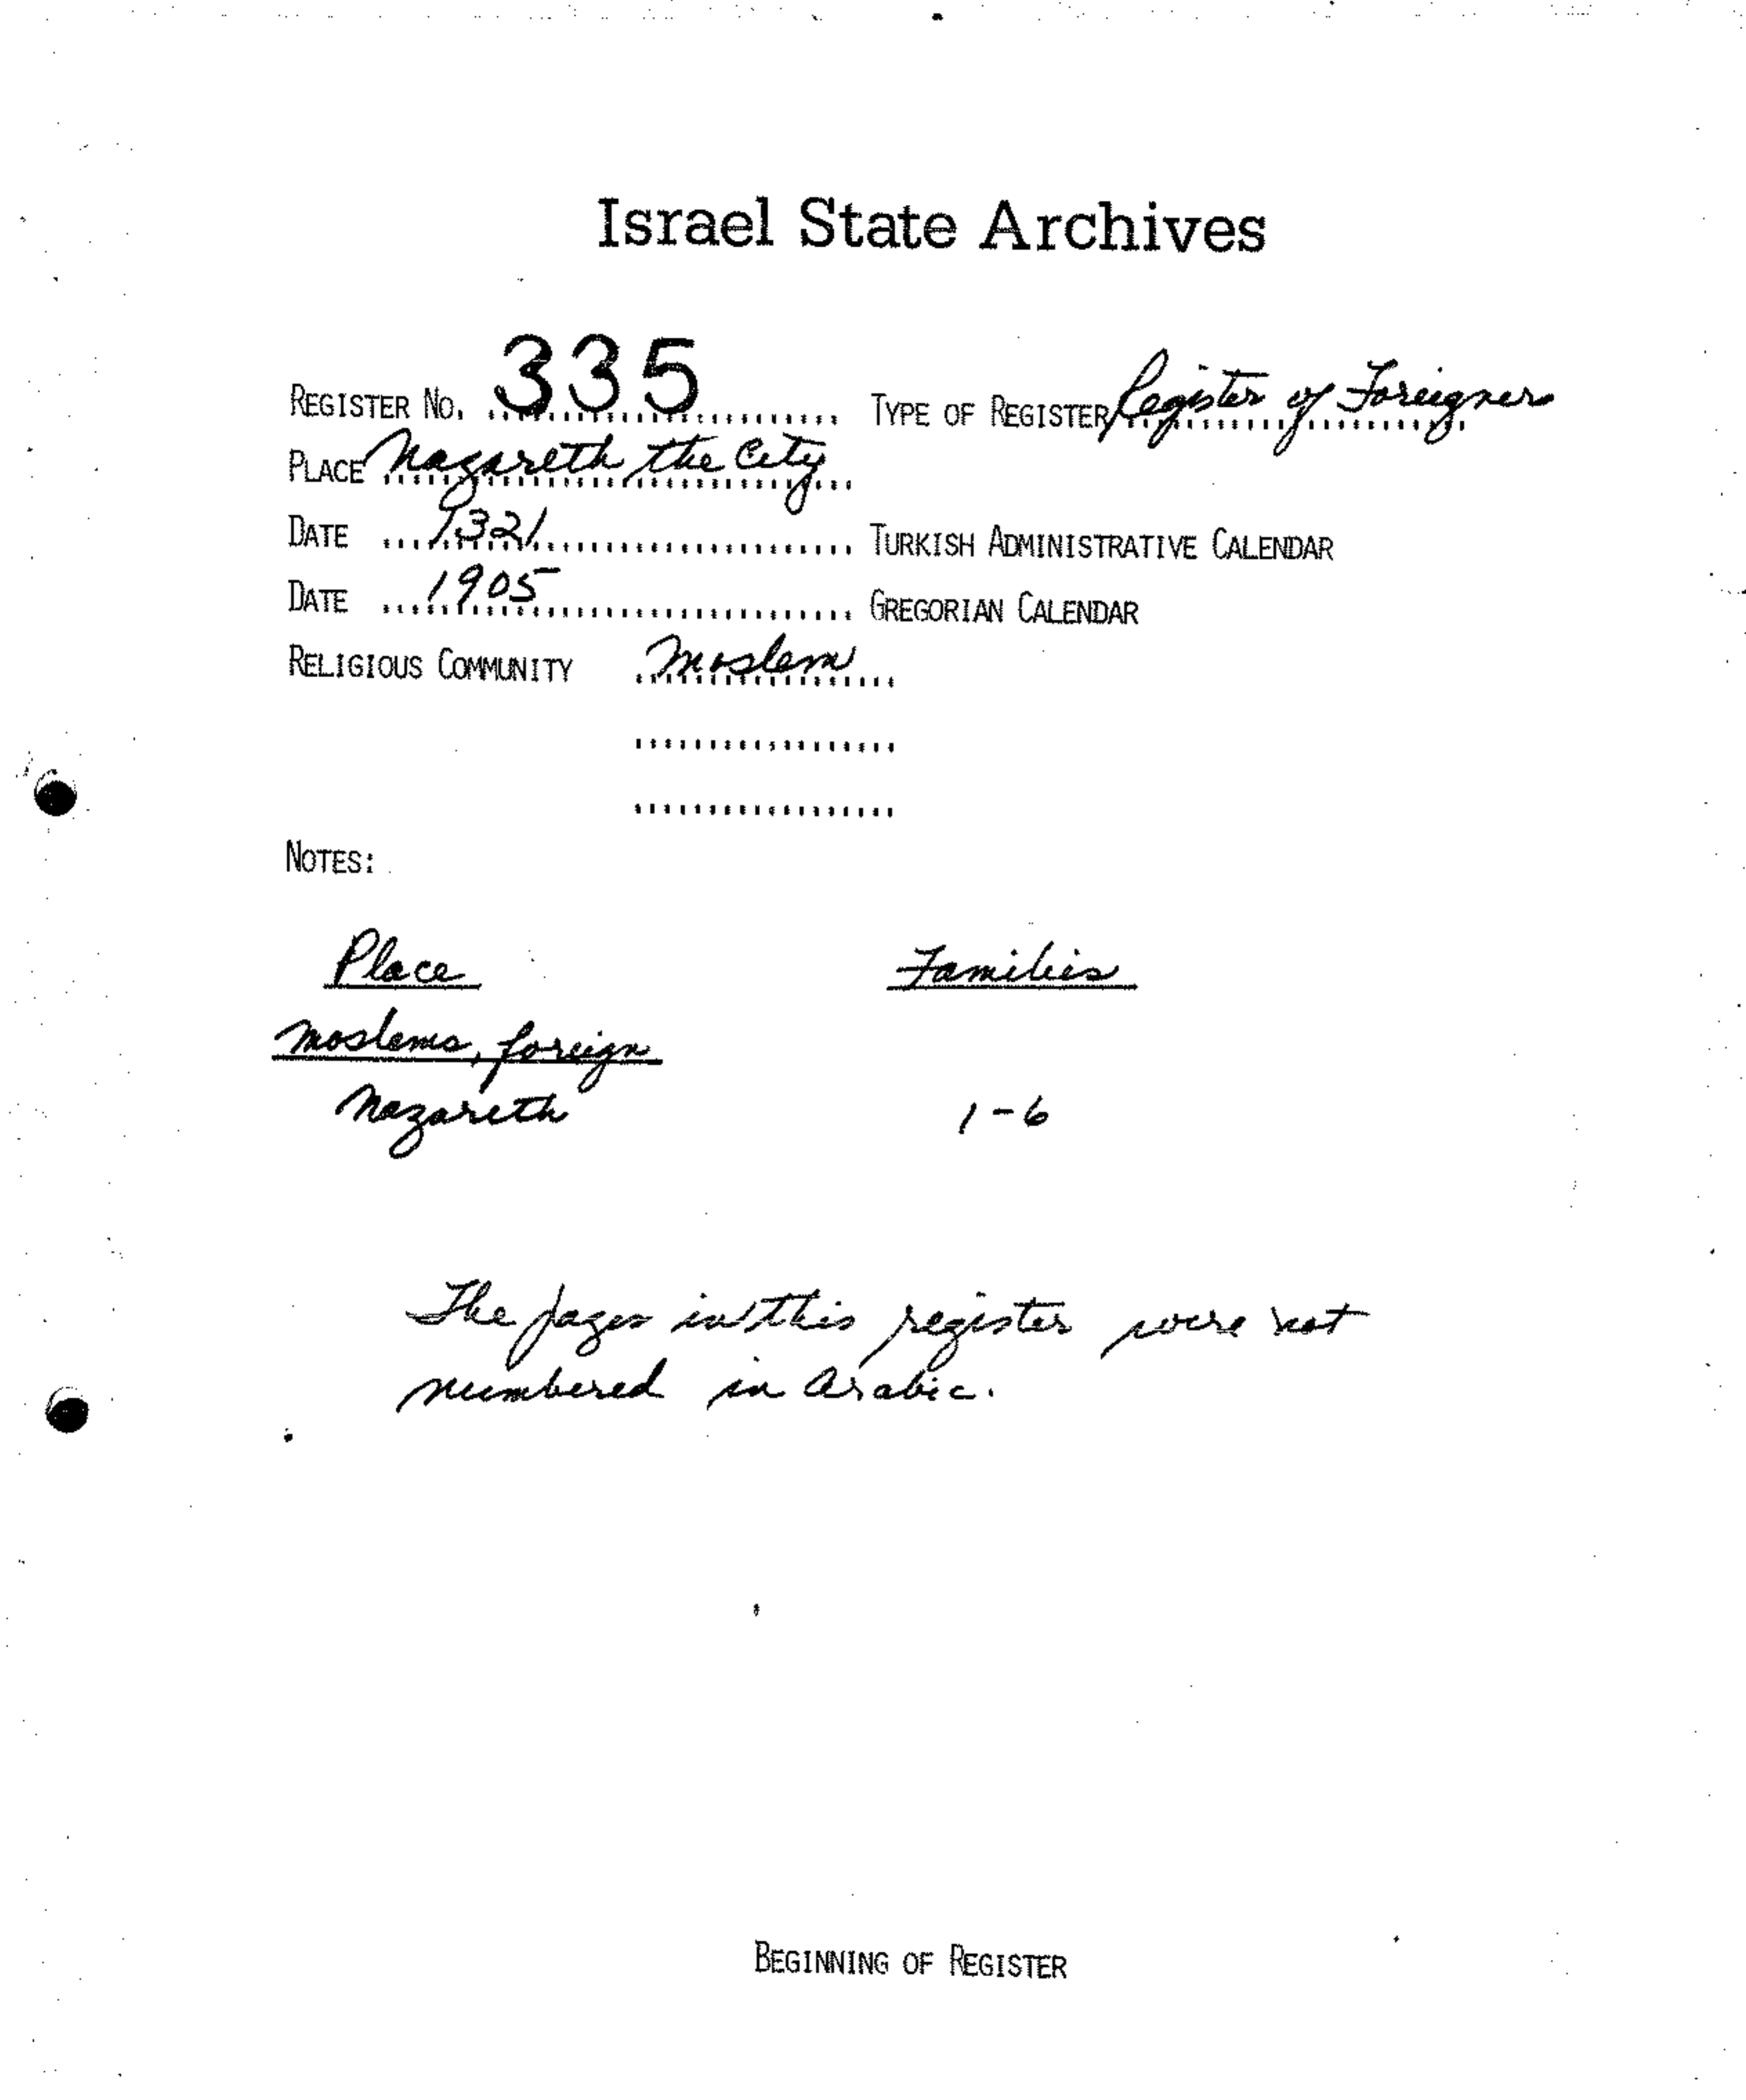 Israel State Archives
REGISTER NO. 335 TYPE OF REGISTER Register of Foreigners
PLACE Nazareth the City
DATE 1321 TURKISH ADMINISTRATIVE CALENDAR
DATE 1905 GREGORIAN CALENDAR
RELIGIOUS COMMUNITY Moslem
NOTES:
Place Families
Moslems, foreign
Nazareth 1-6
The pages in this register were not
numbered in Arabic.
BEGINNING OF REGISTER